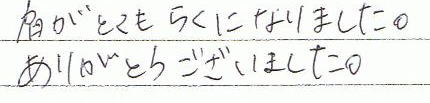 肩がとてもらくになりました。
ありがとうございました。